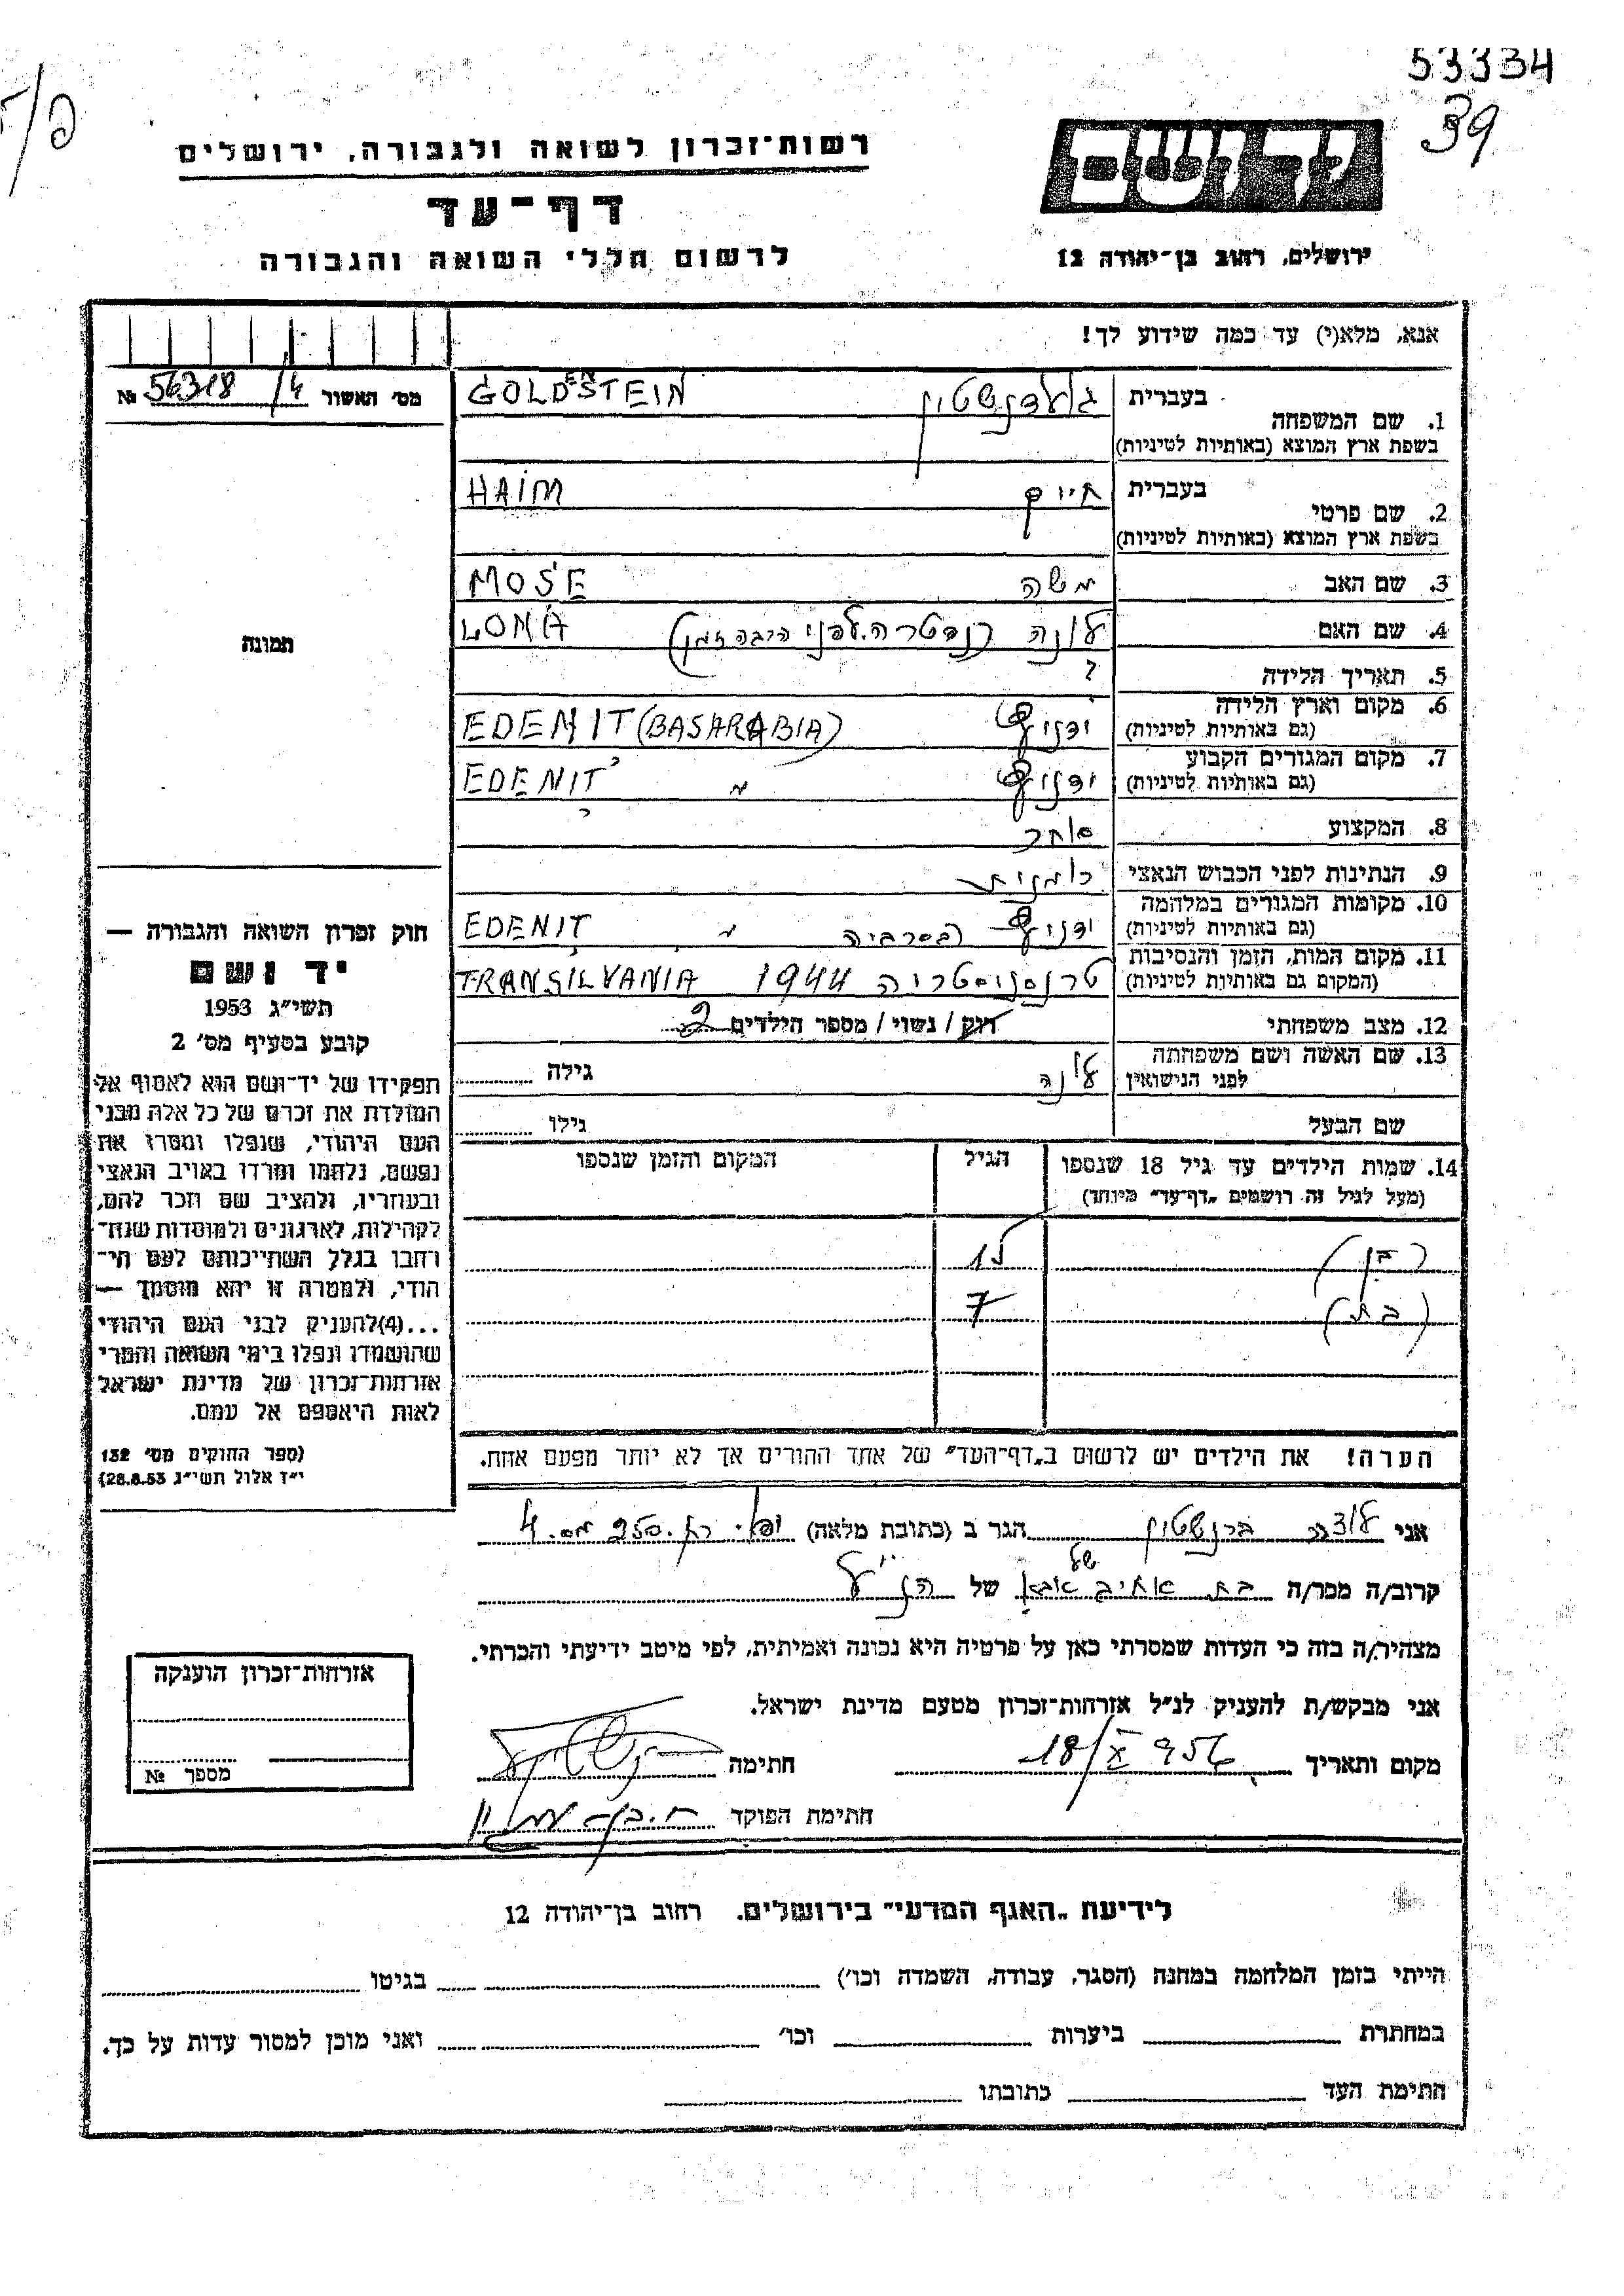 53334
39
יד ושם
רשות־זכרון לשואה ולגבורה, ירושלים
דף־עד
לרשום חללי השואה והגבורה
ירושלים, רחוב בן־יהודה 12
אנא, מלא(י) עד כמה שידוע לך!
מס׳ האשור 56318/4 №
1. שם המשפחה בעברית גולדנשטיין GOLDENSTEIN
בשפת ארץ המוצא (באותיות לטיניות)
2. שם פרטי בעברית חיים HAIM
בשפת ארץ המוצא (באותיות לטיניות)
3. שם האב משה MOSE
4. שם האם לונה (נפטרה לפני הרבה זמן) LONA
5. תאריך הלידה ?
6. מקום וארץ הלידה ידניץ EDENIT (BASARABIA)
(גם באותיות לטיניות)
7. מקום המגורים הקבוע ידניץ EDENIT
(גם באותיות לטיניות)
8. המקצוע סוחר
9. הנתינות לפני הכבוש הנאצי רומנית
10. מקומות המגורים במלחמה ידניץ בסרביה EDENIT
(גם באותיות לטיניות)
11. מקום המות, הזמן והנסיבות טרנסניסטריה 1944 TRANSILVANIA
(המקום גם באותיות לטיניות)
12. מצב משפחתי רווק / נשוי / מספר הילדים 2
13. שם האשה ושם משפחתה לפני הנישואין גילה
שם הבעל גילו
14. שמות הילדים עד גיל 18 שנספו הגיל המקום והזמן שנספו
(מעל לגיל זה רושמים „דף־עד״ מיוחד)
(בן)
(בת) 7
הערה! את הילדים יש לרשום ב„דף־העד״ של אחד ההורים אך לא יותר מפעם אחת.
תמונה
חוק זכרון השואה והגבורה —
יד ושם
תשי״ג 1953
קובע בסעיף מס׳ 2
תפקידו של יד־ושם הוא לאסוף אל
המולדת את זכרם של כל אלה מבני
העם היהודי, שנפלו ומסרו את
נפשם, נלחמו ומרדו באויב הנאצי
ובעוזריו, ולהציב שם וזכר להם,
לקהילות, לארגונים ולמוסדות שנח־
רחבו בגלל השתייכותם לעם הי־
הודי, ולמטרה זו יהא מוסמך —
...(4) להעניק לבני העם היהודי
שהושמדו ונפלו בימי השואה והמרי
אזרחות־זכרון של מדינת ישראל
לאות היאספם אל עמם.
(ספר החוקים מס׳ 132
י״ד אלול תשי״ג 28.8.53)
אני ברנשטיין הגר ב (כתובת מלאה) יפו. רח. 250 מס. 4
קרוב/ה מכר/ה בת אחיב של של הנ״ל
מצהיר/ה בזה כי העדות שמסרתי כאן על פרטיה היא נכונה ואמיתית, לפי מיטב ידיעתי והכרתי.
אני מבקש/ת להעניק לנ״ל אזרחות־זכרון מטעם מדינת ישראל.
מקום ותאריך 18/X 956 חתימה
חתימת הפוקד
אזרחות־זכרון הוענקה
מספר №
לידיעת „האגף המדעי״ בירושלים, רחוב בן־יהודה 12
הייתי בזמן המלחמה במחנה (הסגר, עבודה, השמדה וכו׳) בגיטו
במחתרת ביערות וכו׳ ואני מוכן למסור עדות על כך.
חתימת העד כתובתו